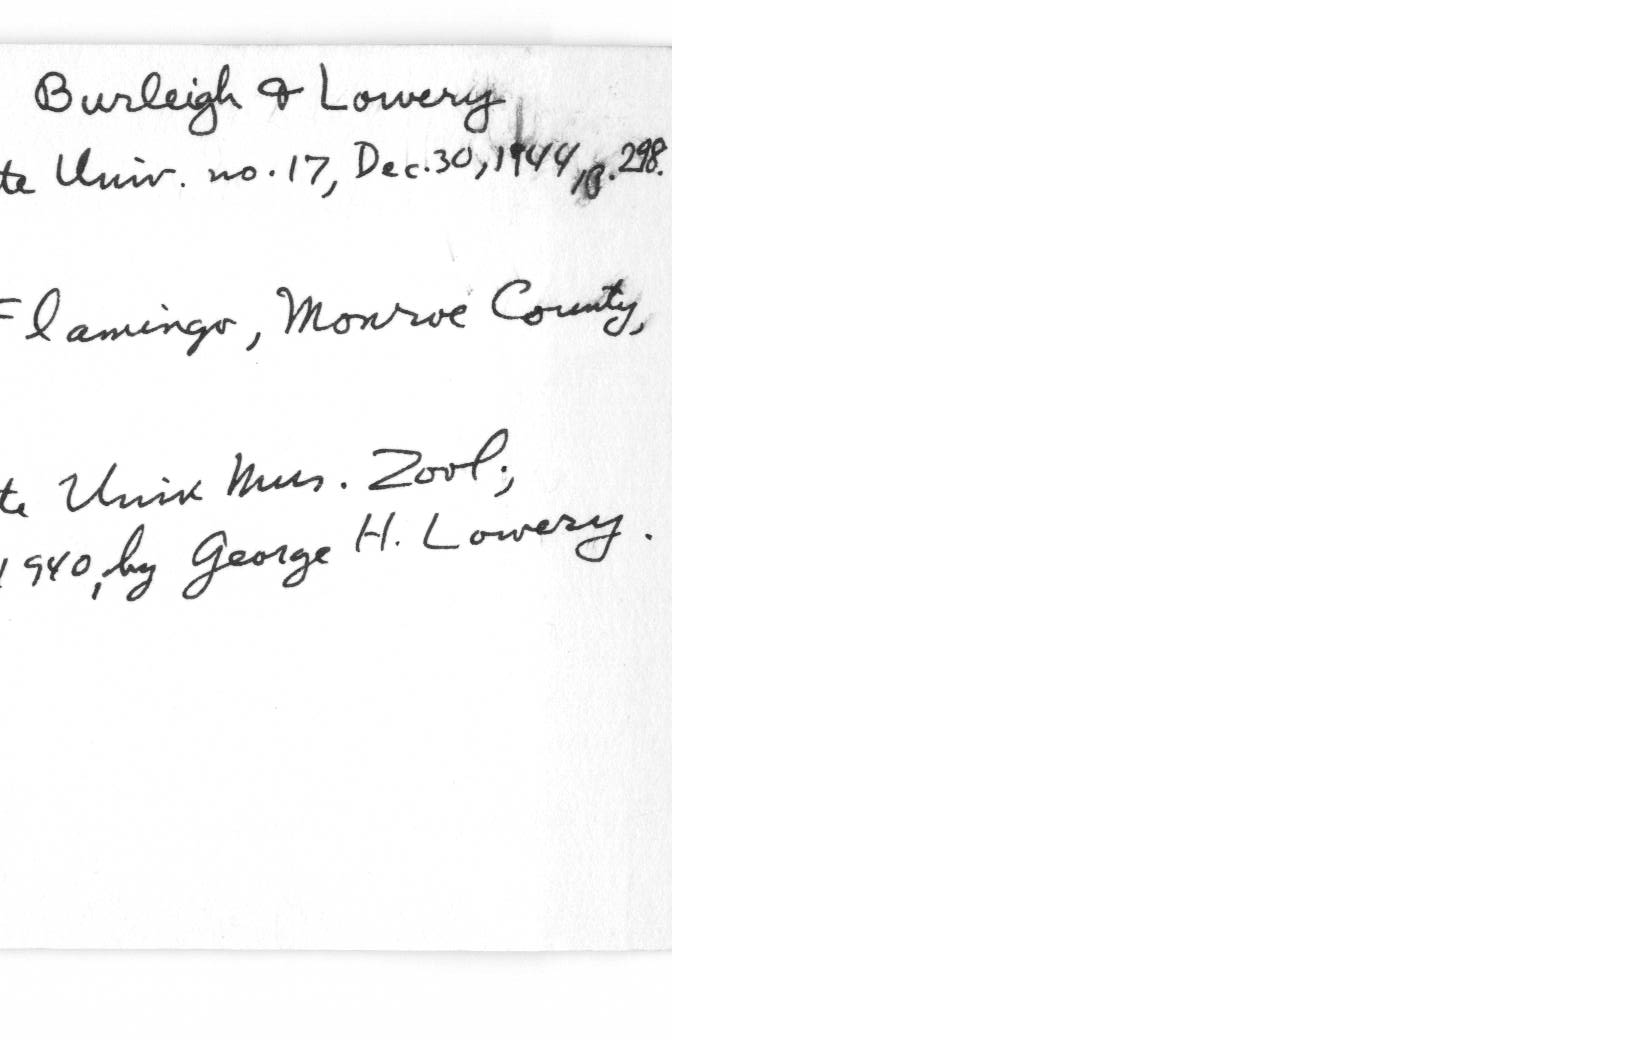 Burleigh & Lowery
te Univ. no. 17, Dec. 30, 1944, p. 298.
Flamingo, Monroe County,
te Univ Mus. Zool;
1940, by George H. Lowery.